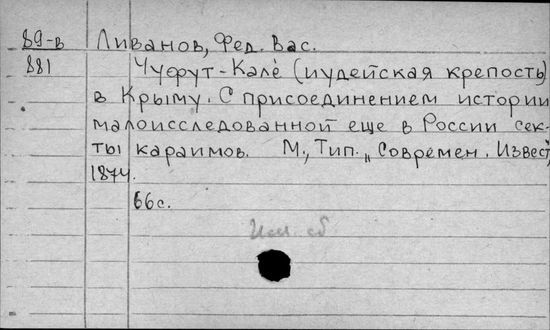 89-в Ливанов, Фед. Вас.
881 Чуфут-Кале́ (иудейская крепость)
в Крыму. С присоединением истории
малоисследованной еще в России сек-
ты караимов. М., Тип. „Современ. Извест",
1874.
66 с.